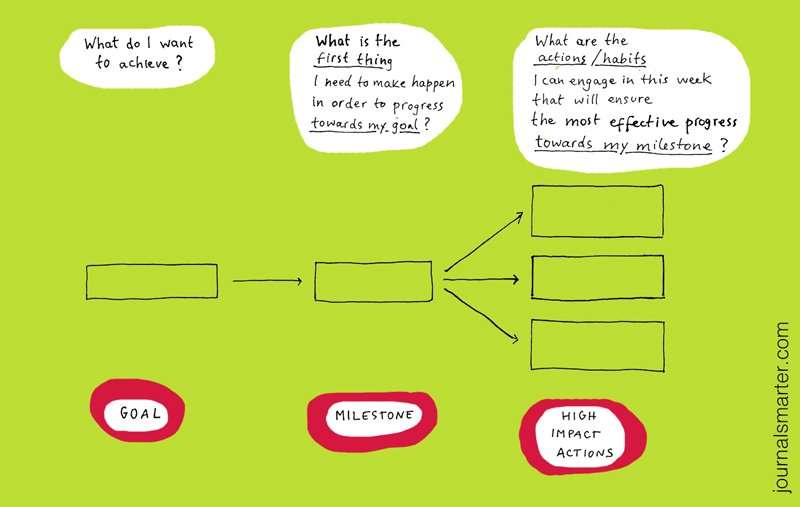 What do I want
to achieve?
What is the
first thing
I need to make happen
in order to progress
towards my goal?
What are the
actions/habits
I can engage in this week
that will ensure
the most effective progress
towards my milestone?
GOAL
MILESTONE
HIGH
IMPACT
ACTIONS
journalsmarter.com